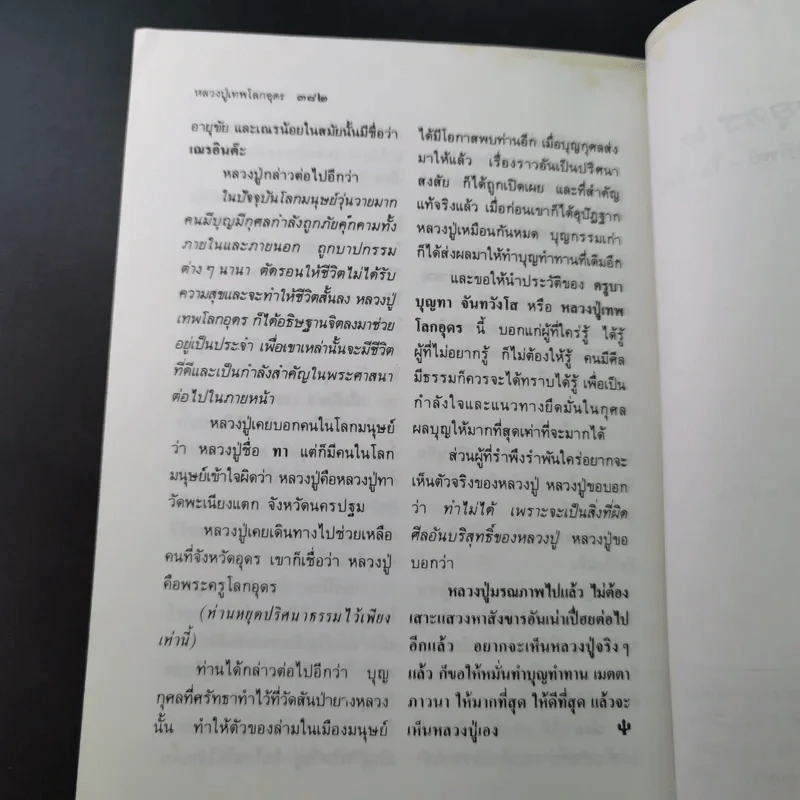 หลวงปู่เทพโลกอุดร ๓๘๒
อายุขัย และเณรน้อยในสมัยนั้นมีชื่อว่า
เฌรอินต๊ะ
หลวงปู่กล่าวต่อไปอีกว่า
ในปัจจุบันโลกมนุษย์วุ่นวายมาก
คนมีบุญมีกุศลกำลังถูกภัยคุ๊กคามทั้ง
ภายในและภายนอก ถูกบาปกรรม
ต่างๆนานา ตัดรอนให้ชีวิตไม่ได้รับ
ความสุขและจะทำให้ชีวิตสั้นลง หลวงปู่
เทพโลกอุดร ก็ได้อธิษฐานจิตลงมาช่วย
อยู่เป็นประจำ เพื่อเขาเหล่านั้นจะมีชีวิต
ที่ดีและเป็นกำลังสำคัญในพระศาสนา
ต่อไปในภายหน้า
หลวงปู่เคยบอกคนในโลกมนุษย์
ว่า หลวงปู่ชื่อ ทา แต่ก็มีคนในโลก
มนุษย์เข้าใจผิดว่า หลวงปู่คือหลวงปู่ทา
วัดพะเนียงแตก จังหวัดนครปฐม
หลวงปู่เคยเดินทางไปช่วยเหลือ
คนที่จังหวัดอุดร เขาก็เชื่อว่า หลวงปู่
คือพระครูโลกอุดร
(ท่านหยุดปริศนาธรรมไว้เพียง
เท่านี้)
ท่านได้กล่าวต่อไปอีกว่า บุญ
กุศลที่ศรัทธาทำไว้ที่วัดสันป่ายางหลวง
นั้น ทำให้ตัวของล่ามในเมืองมนุษย์
ได้มีโอกาสพบท่านอีก เมื่อบุญกุศลส่ง
มาให้แล้ว เรื่องราวอันเป็นปริศนา
สงสัย ก็ได้ถูกเปิดเผย และที่สำคัญ
แท้จริงแล้ว เมื่อก่อนเขาก็ได้อุปัฏฐาก
หลวงปู่เหมือนกันหมด บุญกรรมเก่า
ก็ได้ส่งผลมาให้ทำบุญทำทานที่เดิมอีก
และขอให้นำประวัติของ ครูบา
บุญทา จันทวังโส หรือ หลวงปู่เทพ
โลกอุดร นี้ บอกแก่ผู้ที่ใคร่รู้ ได้รู้
ผู้ที่ไม่อยากรู้ ก็ไม่ต้องให้รู้ คนมีศีล
มีธรรมก็ควรจะได้ทราบได้รู้ เพื่อเป็น
กำลังใจและแนวทางยึดมั่นในกุศล
ผลบุญให้มากที่สุดเท่าที่จะมากได้
ส่วนผู้ที่รำพึงรำพันใคร่อยากจะ
เห็นตัวจริงของหลวงปู่ หลวงปู่ขอบอก
ว่า ทำไม่ได้ เพราะจะเป็นสิ่งที่ผิด
ศีลอันบริสุทธิ์ของหลวงปู่ หลวงปู่ขอ
บอกว่า
หลวงปู่มรณภาพไปแล้ว ไม่ต้อง
เสาะแสวงหาสังขารอันเน่าเปื่อยต่อไป
อีกแล้ว อยากจะเห็นหลวงปู่จริงๆ
แล้ว ก็ขอให้หมั่นทำบุญทำทาน เมตตา
ภาวนา ให้มากที่สุด ให้ดีที่สุด แล้วจะ
เห็นหลวงปู่เอง